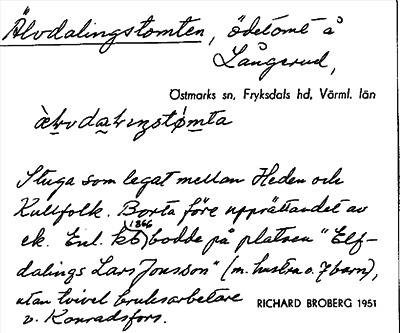 Älvdalingstomten, ödetomt å
Långerud,
Östmarks sn, Fryksdals hd, Värml. län
Stuga som legat mellan Heden och
Kullfolk. Borta före upprättandet av
ek. Enl. kb 1866 bodde på platsen "Elf-
dalings Lars Jonsson" (m. hustru o. 7 barn),
utan tvivel bruksarbetare
v. Konradsfors.
RICHARD BROBERG 1951